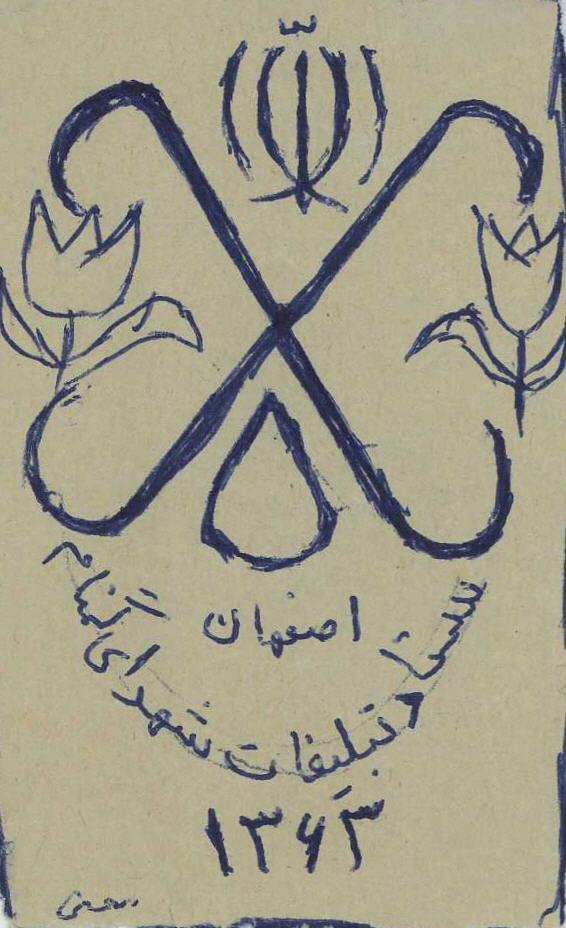 اصفهان
ستاد تبلیغات شهدای گمنام
۱۳۶۳